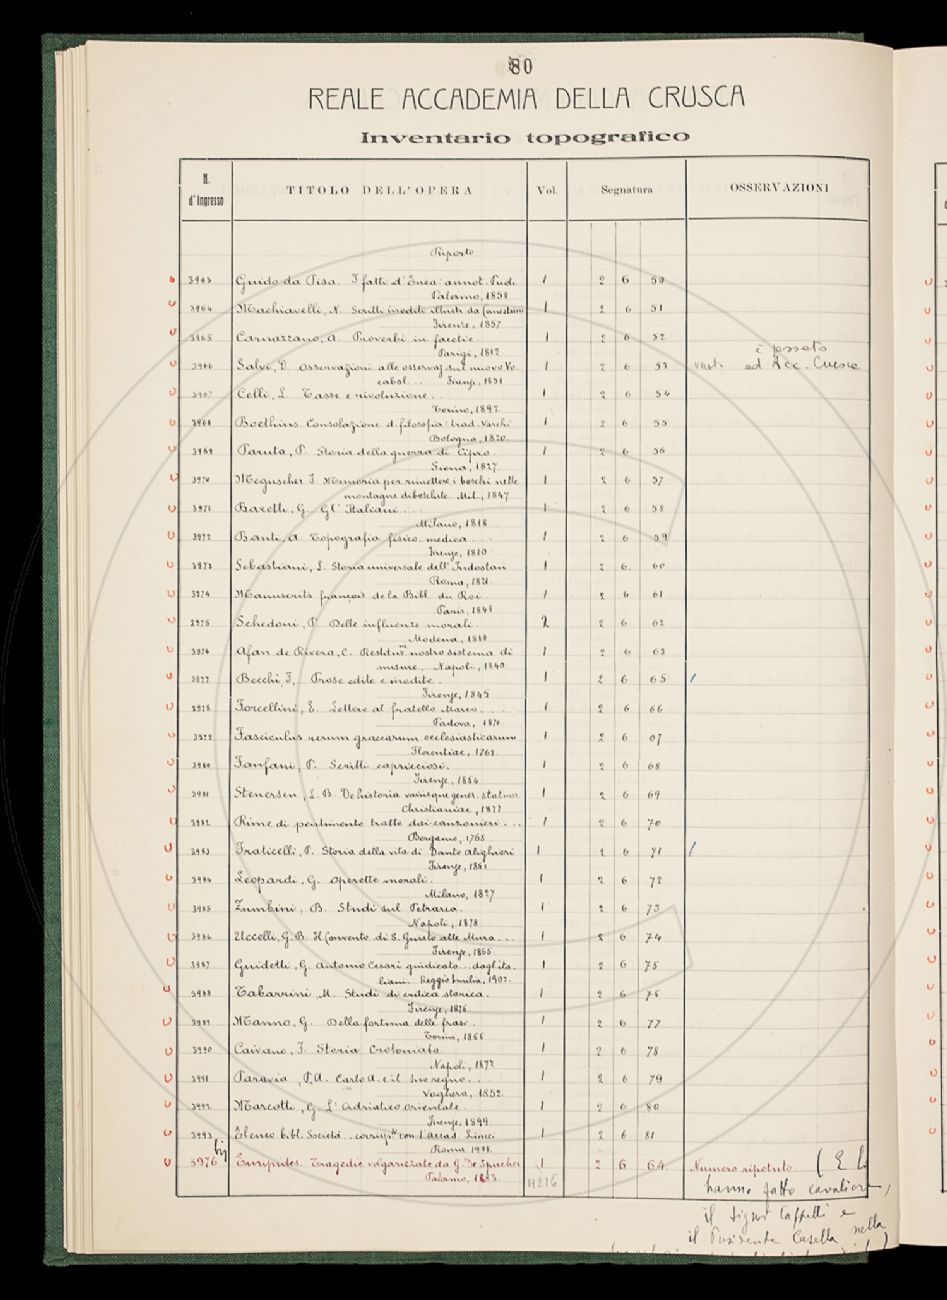 80
REALE ACCADEMIA DELLA CRUSCA
Inventario topografico
N. d'Ingresso TITOLO DELL'OPERA Vol. Segnatura OSSERVAZIONI
Riporto
3963 Guido da Pisa. I fatti d'Enea: annot. Puoti 1 2 6 50
Palermo, 1858
3964 Machiavelli, N. Scritti inediti illustr. da Canestrini 1 2 6 51
Firenze, 1857
3965 Cornazzano, A. Proverbi in facetie. 1 2 6 52
Parigi, 1812
è passato
3966 Salvi, D. osservazioni alle osservaz. sul nuovo Vo- 1 2 6 53 ad Acc. Crusca
cabol... Firenze, 1851
3967 Celli, L. Tasse e rivoluzione. 1 2 6 54
Torino, 1892
3968 Boethius. Consolazione d. filosofia: trad. Varchi 1 2 6 55
Bologna, 1820
3969 Paruta, P. Storia della guerra di Cipro. 1 2 6 56
Siena, 1827
3970 Megnscher F. Memoria per rimettere i boschi nelle 1 2 6 57
montagne diboschite. Mil., 1847
3971 Baretti, G. Gl'Italiani... 1 2 6 58
Milano, 1818
3972 Banti, A. Topografia fisico-medica... 1 2 6 59
Firenze, 1810
3973 Sebastiani, L. Storia universale dell'Indostan 1 2 6 60
Roma, 1821
3974 Manuscrits françois de la Bibl. du Roi 1 2 6 61
Paris, 1848
3975 Schedoni, P. Delle influenze morali. 2 2 6 62
Modena, 1810
3976 Afan de Rivera, C. Restituz.ne nostro sistema di 1 2 6 63
misure. Napoli, 1840
3977 Becchi, F. Prose edite e inedite. 1 2 6 65
Firenze, 1845
3978 Forcellini, E. Lettere al fratello Marco... 1 2 6 66
Padova, 1876
3979 Fasciculus rerum graecarum ecclesiasticarum 1 2 6 67
Florentiae, 1763
3980 Fanfani, P. Scritti capricciosi. 1 2 6 68
Firenze, 1864
3981 Stenersen, L. B. De historia variisque gener. statuar. 1 2 6 69
Christianiae, 1877
3982 Rime di pentimento tratte dai canzonieri... 1 2 6 70
Bergamo, 1765
3983 Fraticelli, P. Storia della vita di Dante Alighieri 1 2 6 71
Firenze, 1861
3984 Leopardi, G. operette morali. 1 2 6 72
Milano, 1827
3985 Zumbini, B. Studi sul Petrarca. 1 2 6 73
Napoli, 1878
3986 Uccelli, G. B. Il Convento di S. Giusto alle Mura... 1 2 6 74
Firenze, 1865
3987 Guidetti, G. Antonio Cesari giudicato... dagl'ita- 1 2 6 75
liani. Reggio Emilia, 1902.
3988 Tabarrini, M. Studi di critica storica. 1 2 6 76
Firenze, 1876
3989 Manno, G. Della fortuna delle frasi. 1 2 6 77
Torino, 1866
3990 Caivano, F. Storia Crotoniata. 1 2 6 78
Napoli, 1872
3991 Paravia, P. A. Carlo A. e il suo regno... 1 2 6 79
Voghera, 1852.
3992 Marcotti, G. L'Adriatico orientale. 1 2 6 80
Firenze, 1899
3993 Elenco bibl. Società... corrisp.ti con l'Accad. Lincei 1 2 6 81
Roma 1908.
3976 bis Euripides. Tragedie volgarizzate da G. De Spuches 1 2 6 64 Numero ripetuto (E li
Palermo, 1883. 4216 hanno fatto cavalieri,
il Signor Cappelli e
il Presidente Casella nella